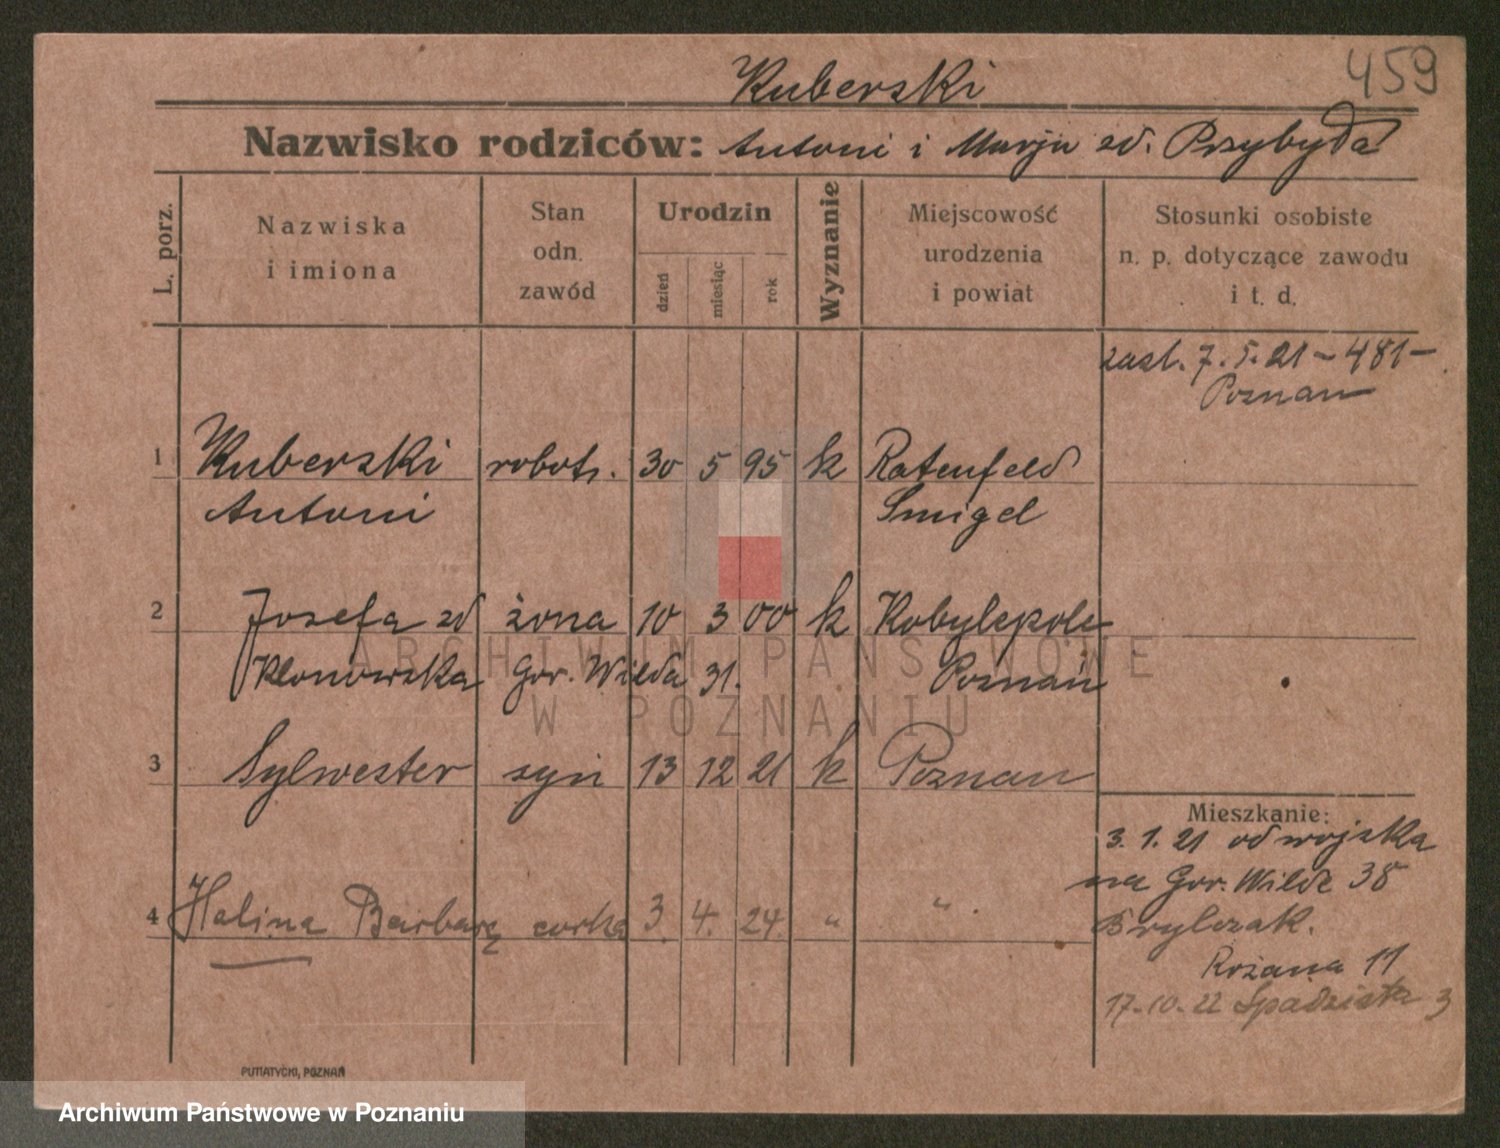 459
Kuberski
Nazwisko rodziców: Antoni i Marja zd. Przybyła
L. porz.
Nazwiska
i imiona
Stan
odn.
zawód
Urodzin
dzień
miesiąc
rok
Wyznanie
Miejscowość
urodzenia
i powiat
Stosunki osobiste
n. p. dotyczące zawodu
i t. d.
zasl. 7.5.21 – 481 –
Poznan
1 Kuberski robotn. 30 5 95 k Ratenfeld
Antoni Smigel
2 Josefa zd żona 10 3 00 k Kobylepole
Klonowska Gor. Wilda 31. Poznań
3 Sylwester syn 13 12 21 k Poznan
Mieszkanie:
3.1.21 od wojska
na Gor. Wilde 38
Brylczak.
4 Halina Barbara corka 3. 4. 24. " " .
Rożana 11
17-10-22 Spadzista 3
PUTIATYCKI, POZNAŃ
ARCHIWUM PAŃSTWOWE
W POZNANIU
Archiwum Państwowe w Poznaniu